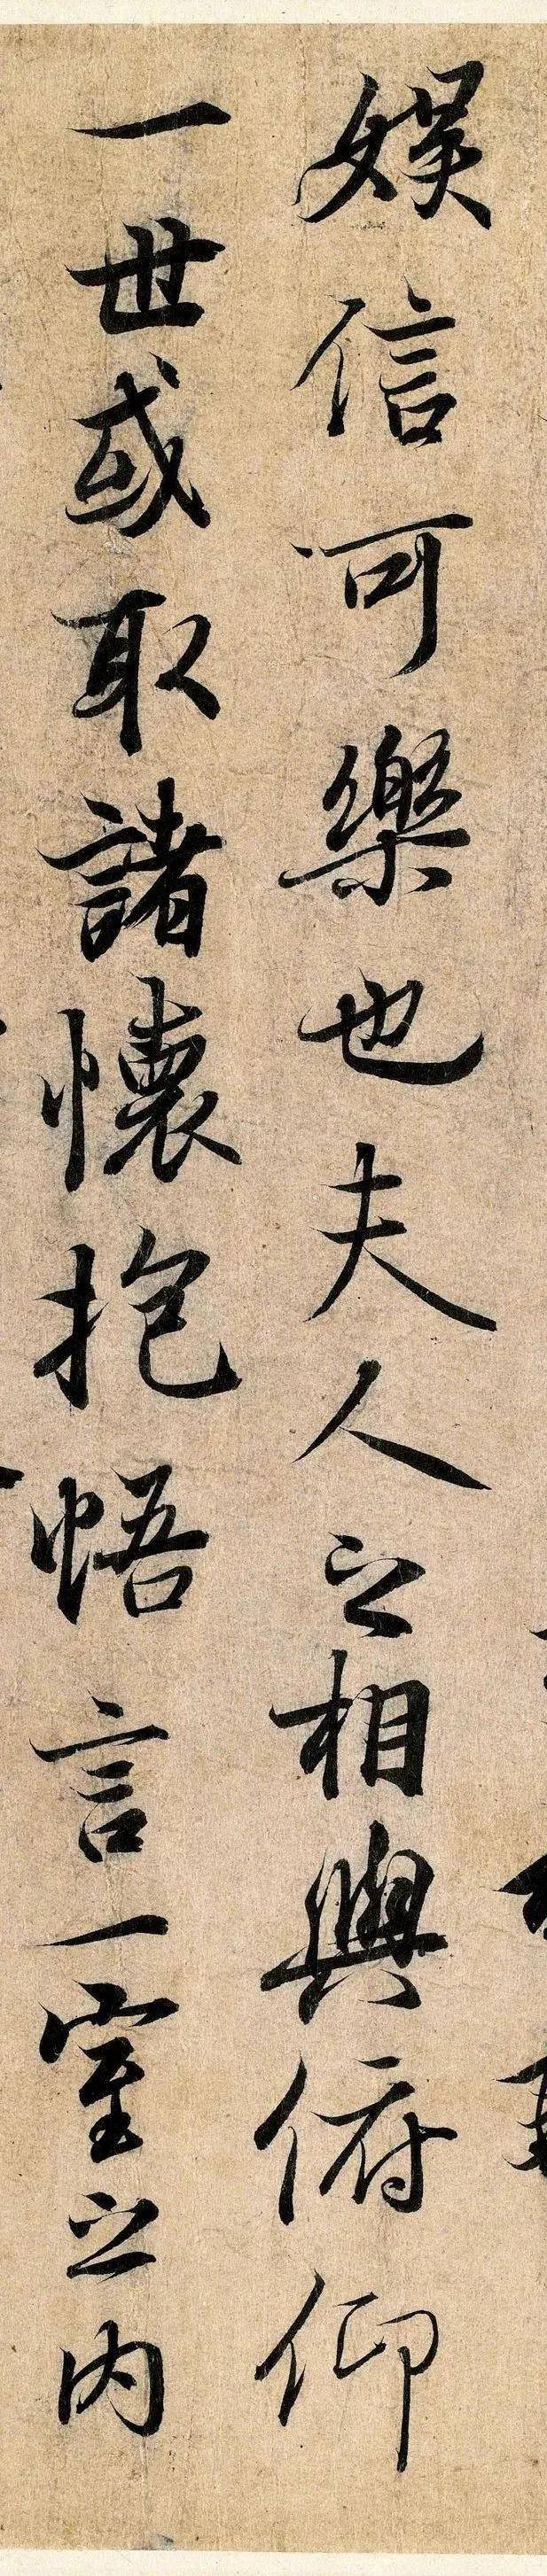 娛信可樂也夫人之相與俯仰
一世或取諸懷抱悟言一室之內